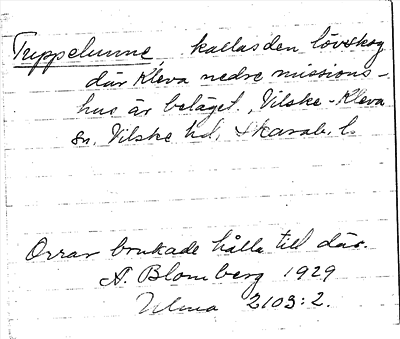 Trippelunne, kallas den lövskog
där Kleva nedre missions-
hus är beläget. Vilske-Kleva
sn. Vilske hd. Skarab. l.
Orrar brukade hålla till där.
A. Blomberg 1929
Ulma 2103:2.